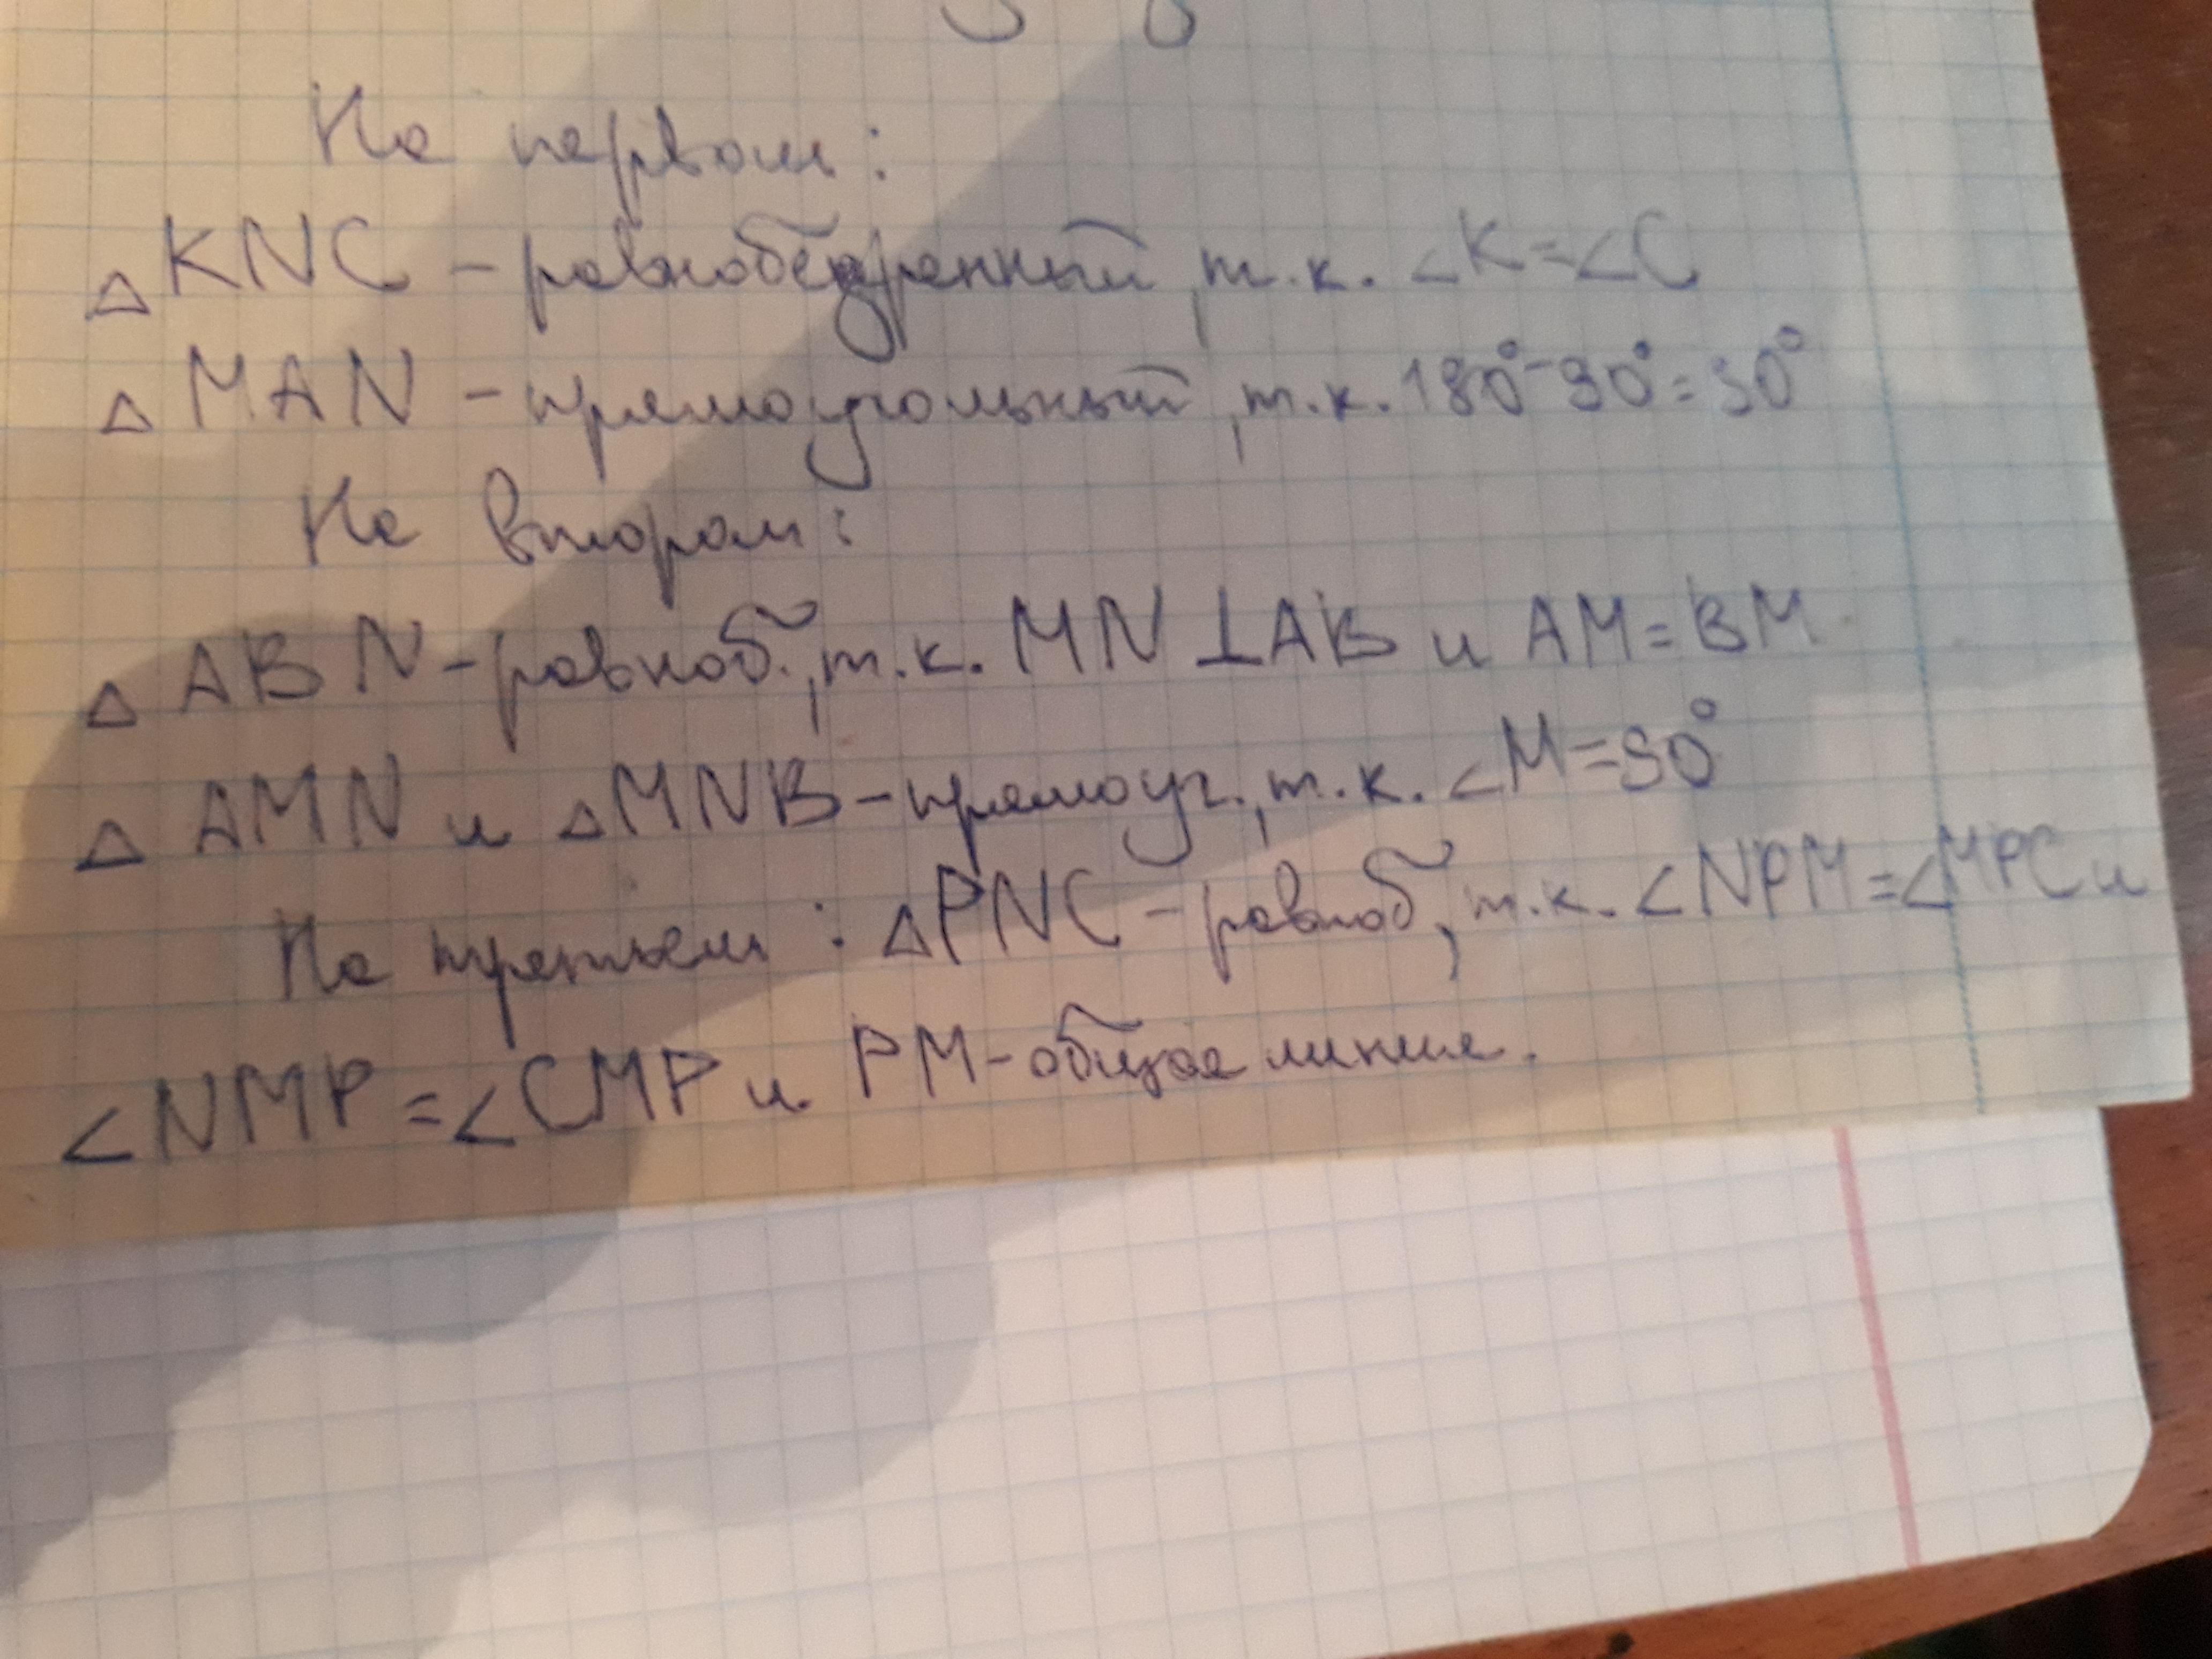 На первом:
△KNC - равнобедренный, т.к. ∠K=∠C
△MAN - прямоугольный, т.к. 180°-90°=90°
На втором:
△ABN - равноб., т.к. MN⊥AB и AM=BM.
△AMN и △MNB - прямоуг., т.к. ∠M=90°
На третьем: △PNC - равноб, т.к. ∠NPM=∠MPC и
∠NMP=∠CMP и PM - общая линия.